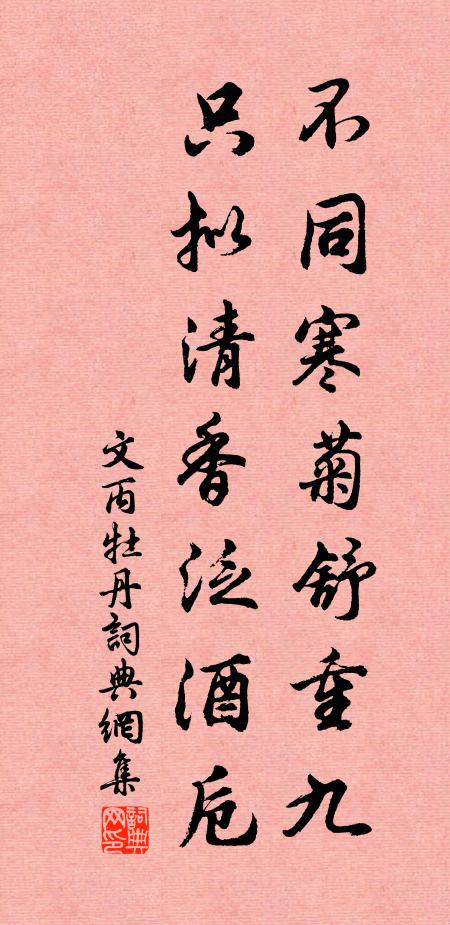 不同寒菊舒重九
只拟清香泛酒卮
文丙牡丹詞典網集
詞典网印